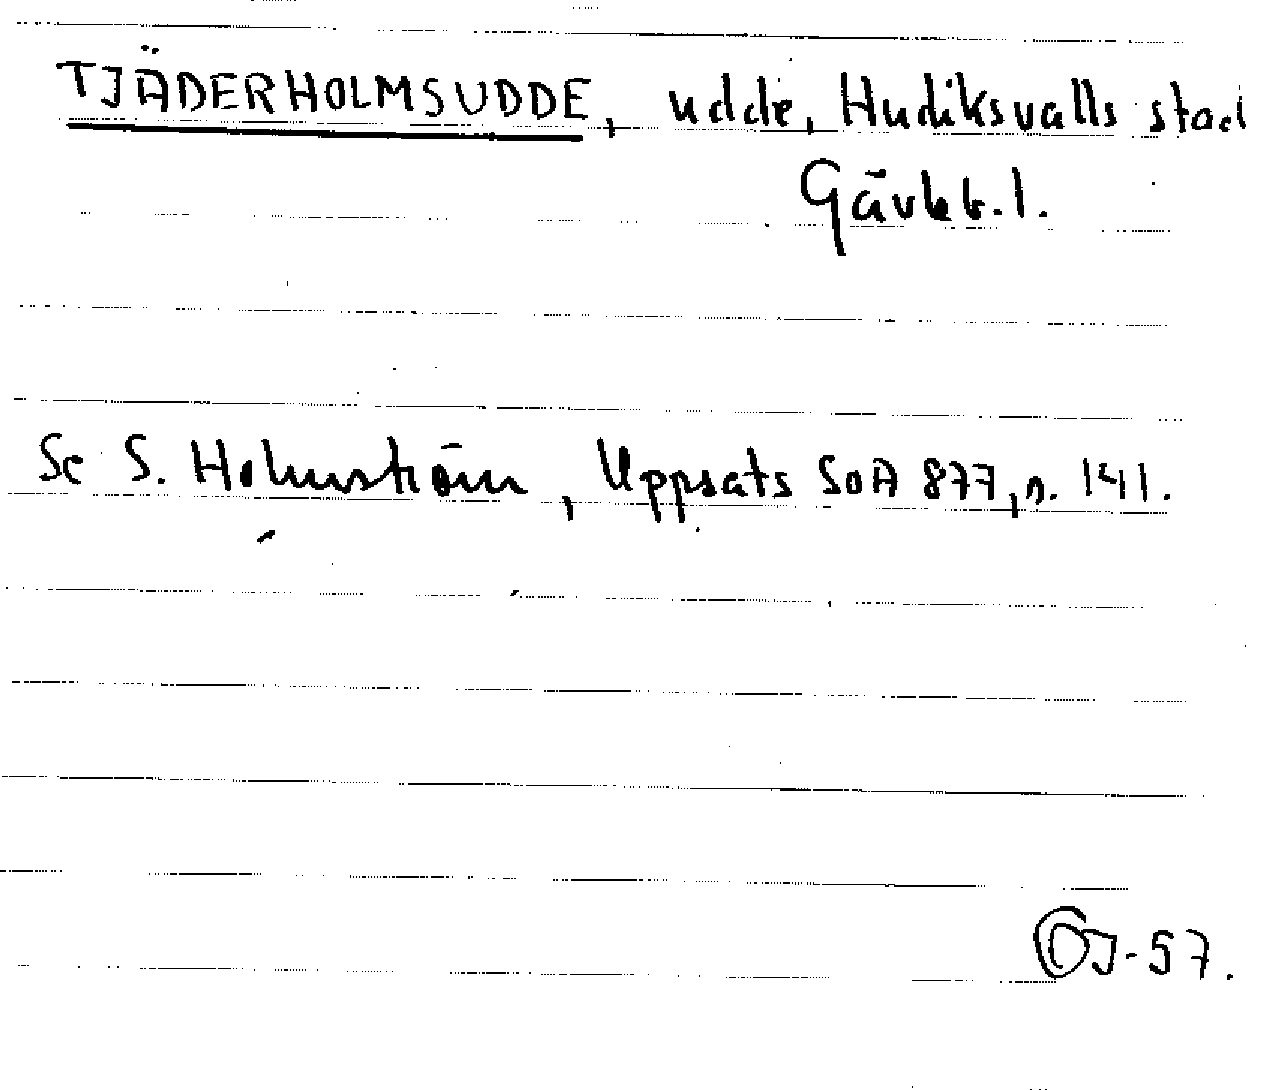 TJÄDERHOLMSUDDE, udde, Hudiksvalls stad
Gävleb.l.
Se S. Holmström, Uppsats SOA 877, s. 141.
OJ-57.